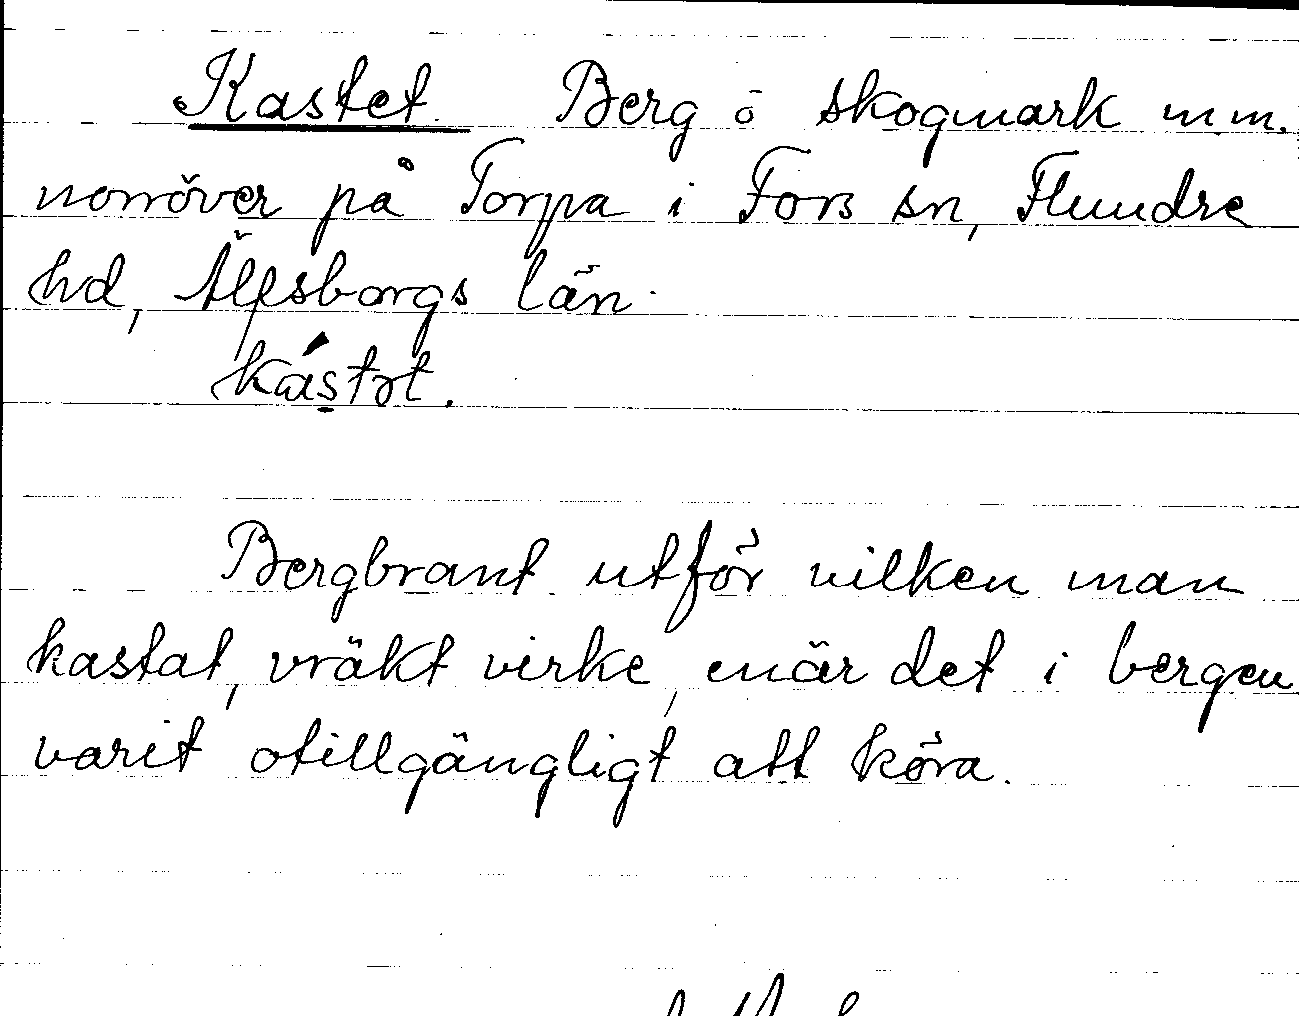 Kastet Berg o skogmark m.m.
norröver på Torpa i Fors sn, Flundre
hd, Älfsborgs län.
kástɔt.
Bergbrant utför vilken man
kastat, vräkt virke, enär det i bergen
varit otillgängligt att köra.